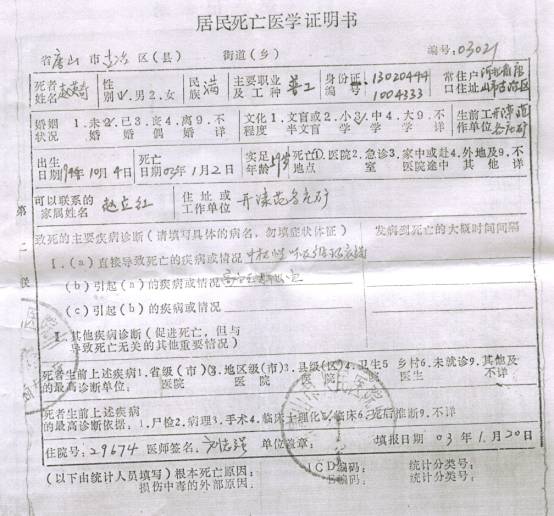 居民死亡医学证明书
省唐山市古冶区(县) 街道(乡) 编号:03021
死者姓名 性别 1.男2.女 民族 满 主要职业及工种 普工 身份证编号 常住户口住址
婚姻状况 1.未婚 2.已婚 3.丧偶 4.离婚 9.不详 文化程度 1.文盲或半文盲 2.小学 3.中学 4.大学 9.不详 生前工作单位
出生日期 年10月4日 死亡日期03年1月2日 实足年龄 死亡地点 1.医院2.急诊室3.家中或赴医院途中4.外地及其他9.不详
可以联系的家属姓名 赵立红 住址或工作单位
第二联
致死的主要疾病诊断(请填写具体的病名,勿填症状体证) 发病到死亡的大概时间间隔
Ⅰ.(a)直接导致死亡的疾病或情况 中枢性呼吸循环衰竭
(b)引起(a)的疾病或情况
(c)引起(b)的疾病或情况
Ⅱ.其他疾病诊断(促进死亡,但与导致死亡无关的其他重要情况)
死者生前上述疾病的最高诊断单位: 1.省级(市)医院 2.地区级(市)医院 3.县级(区)医院 4.卫生院 5.乡村医生 6.未就诊 9.其他及不详
死者生前上述疾病的最高诊断依据: 1.尸检2.病理3.手术4.临床+理化5.临床6.死后推断9.不详
住院号:29674 医师签名: 单位盖章: 填报日期 03年1月20日
(以下由统计人员填写)根本死亡原因: ICD编码: 统计分类号:
损伤中毒的外部原因: E编码: 统计分类号: